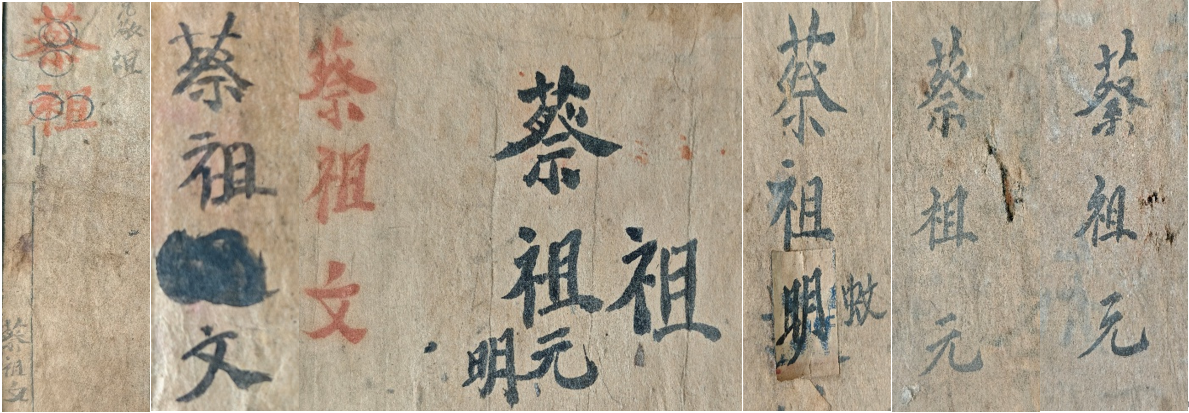 蔡祖
蔡祖文
蔡祖文
蔡祖文
蔡祖元
祖
明
蔡祖明
蚊
蔡祖元
蔡祖元